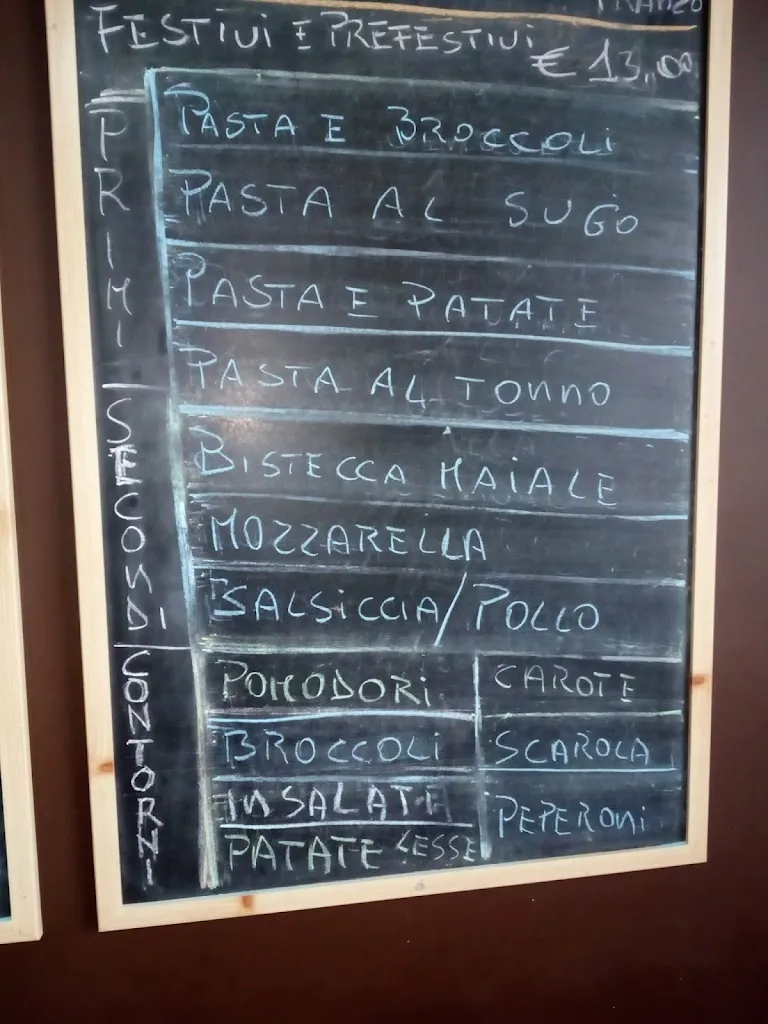 PRANZO
FESTIVI E PREFESTIVI
€ 13,00
PRIMI
PASTA E BROCCOLI
PASTA AL SUGO
PASTA E PATATE
PASTA AL TONNO
SECONDI
BISTECCA MAIALE
MOZZARELLA
SALSICCIA/POLLO
CONTORNI
POMODORI CAROTE
BROCCOLI SCAROLA
INSALATA PEPERONI
PATATE LESSE